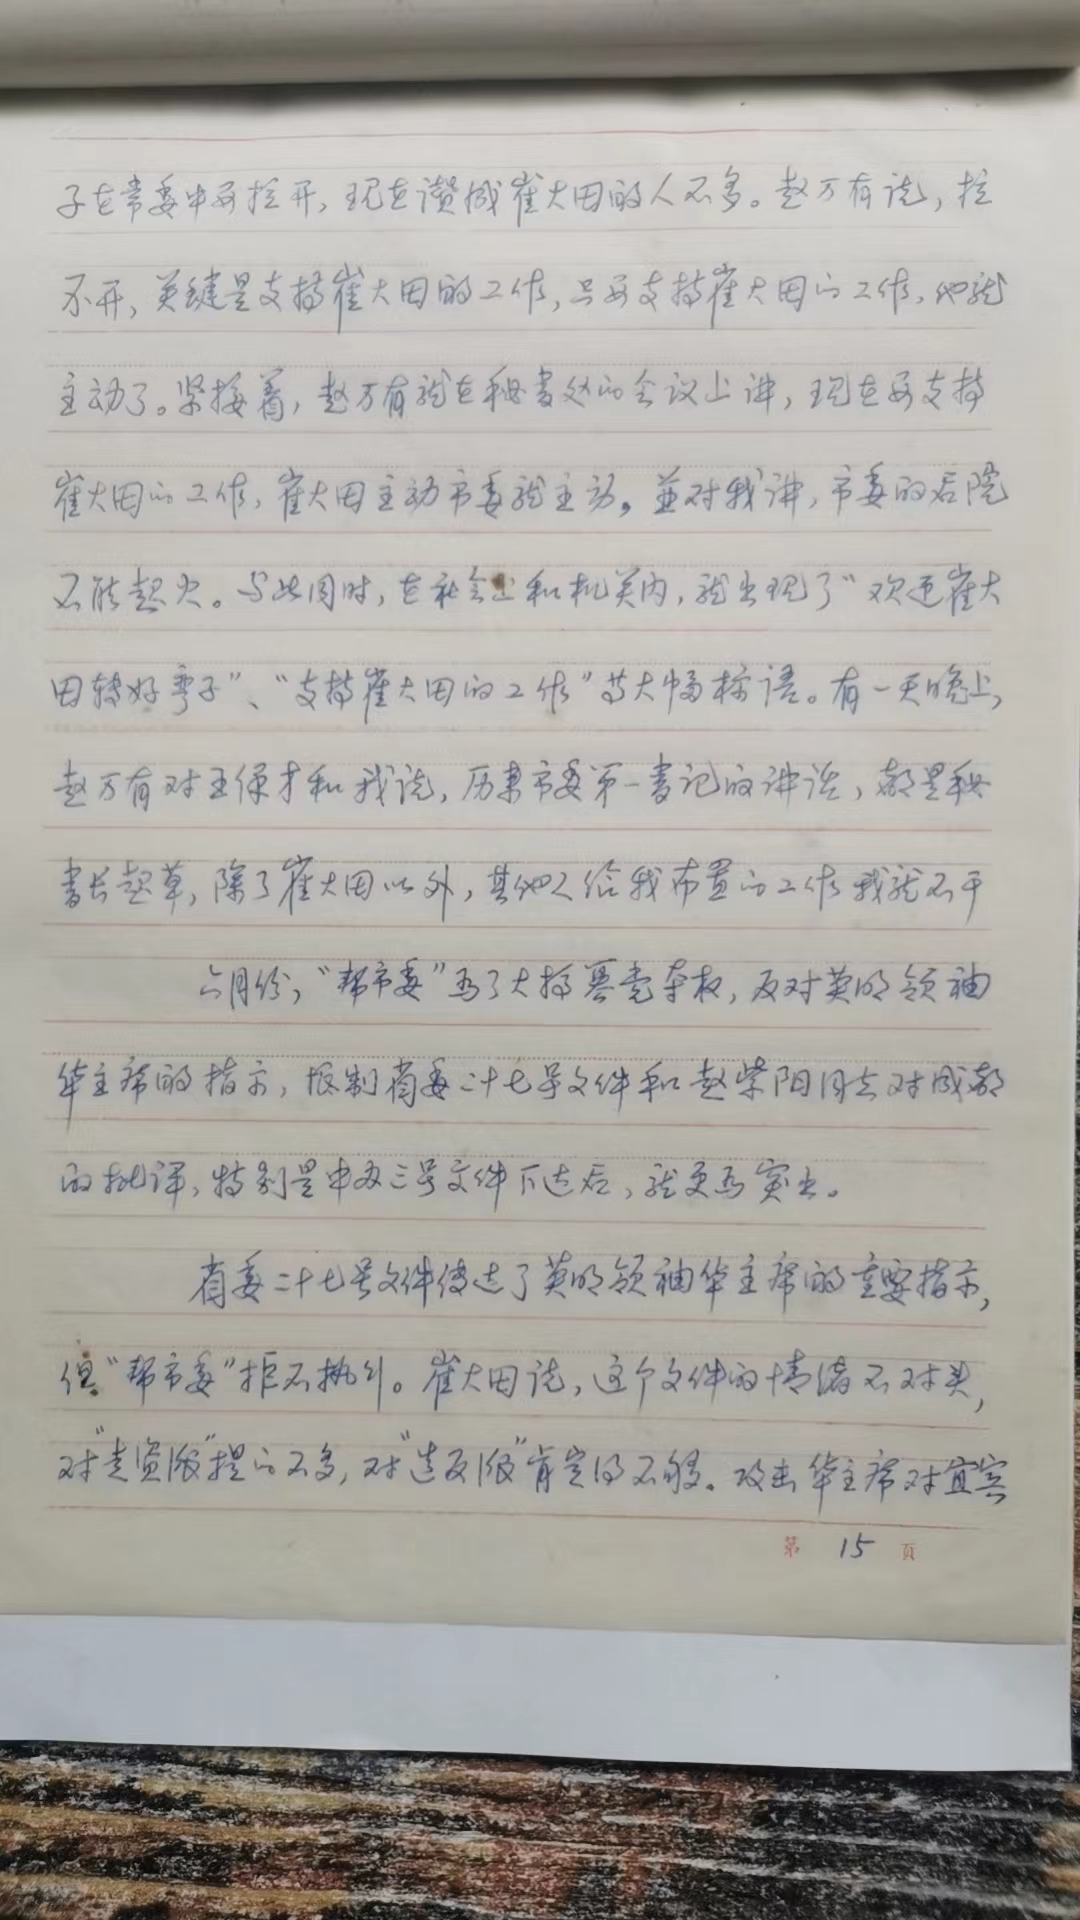 子在常委中要拉开，现在讚成崔大田的人不多。赵万有说，拉
不开，关键是支持崔大田的工作，只要支持崔大田的工作，他就
主动了。紧接着，赵万有就在秘书处的会议上讲，现在要支持
崔大田的工作，崔大田主动市委就主动。並对我讲，市委的后院
不能起火。与此同时，在社会上和机关内，就出现了“欢迎崔大
田转好弯子”、“支持崔大田的工作”等大幅标语。有一天晚上，
赵万有对王保才和我说，历来市委第一书记的讲话，都是秘
书长起草，除了崔大田以外，其他人给我布置的工作我就不干
六月份，“帮市委”为了大搞篡党夺权，反对英明领袖
华主席的指示，抵制省委二十七号文件和赵紫阳同志对成都
的批评，特别是中办三号文件下达后，就更为突出。
省委二十七号文件传达了英明领袖华主席的重要指示，
但“帮市委”拒不执行。崔大田说，这个文件的情绪不对头，
对“走资派”提的不多，对“造反派”肯定得不够。攻击华主席对宜宾
第 15 頁